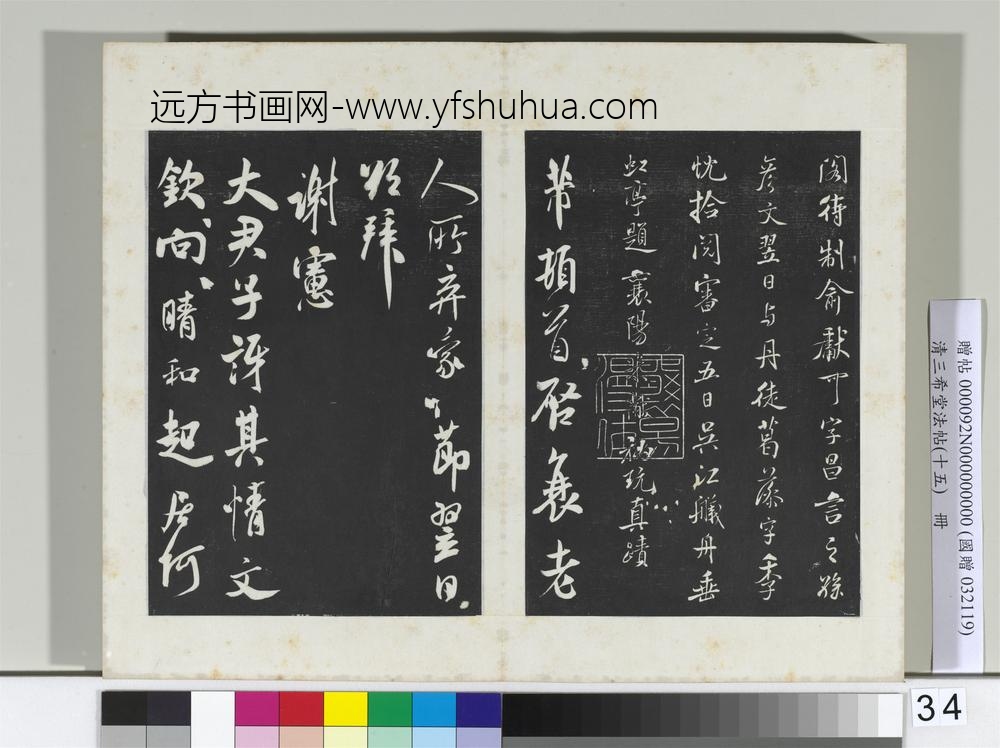 远方书画网-www.yfshuhua.com
閣待制俞獻可字昌言之孫
彦文翌日与丹徒葛藻字季
忱拾閱審定五日吴江艤舟垂
虹亭題 襄陽米黻祕玩真蹟
芾頓首啓衰老
人所弃家々節翌日
將拜
謝憲
大尹子訝其情文
欽向晴和起居何
贈帖 000092N000000000 (國贈 032119)
清三希堂法帖(十五) 冊
34